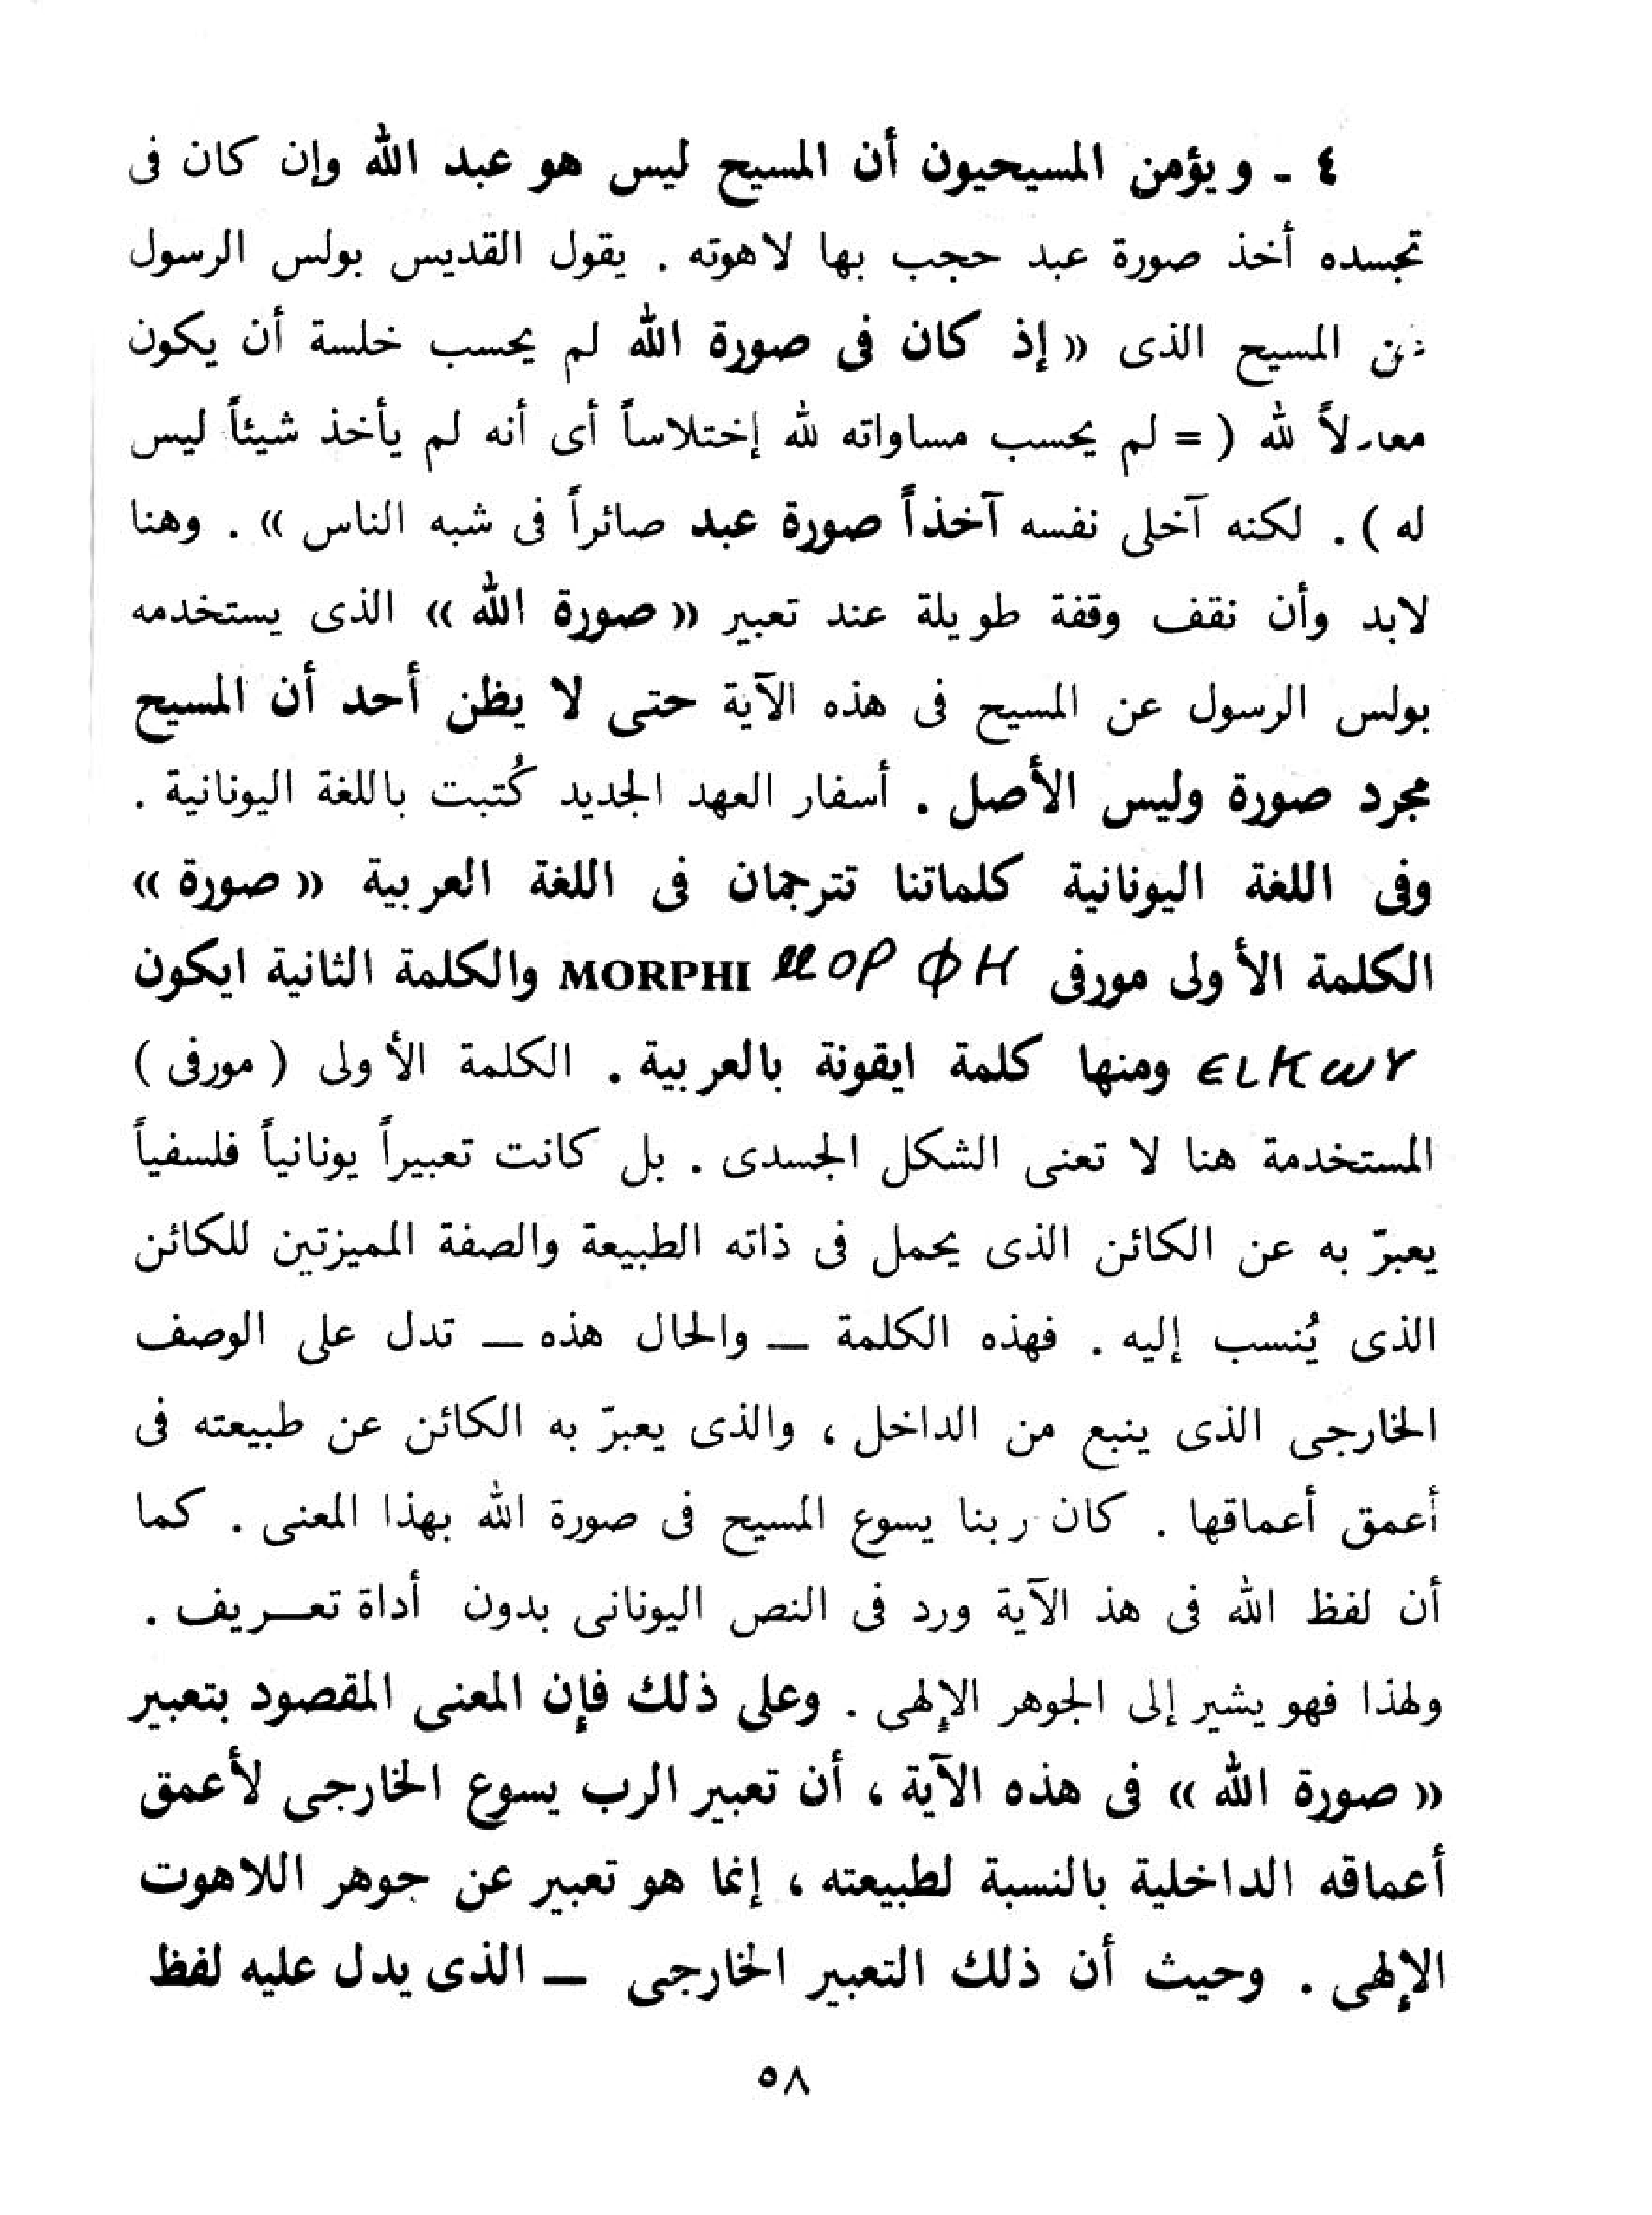 ٤ ـ ويؤمن المسيحيون أن المسيح ليس هو عبد الله وإن كان فى
تجسده أخذ صورة عبد حجب بها لاهوته . يقول القديس بولس الرسول
عن المسيح الذى « إذ كان فى صورة الله لم يحسب خلسة أن يكون
معادلاً لله ( = لم يحسب مساواته لله إختلاساً أى أنه لم يأخذ شيئاً ليس
له ) . لكنه آخلى نفسه آخذاً صورة عبد صائراً فى شبه الناس » . وهنا
لابد وأن نقف وقفة طويلة عند تعبير « صورة الله » الذى يستخدمه
بولس الرسول عن المسيح فى هذه الآية حتى لا يظن أحد أن المسيح
مجرد صورة وليس الأصل . أسفار العهد الجديد كُتبت باللغة اليونانية .
وفى اللغة اليونانية كلماتنا تترجمان فى اللغة العربية « صورة »
الكلمة الأولى مورفى ΜΟΡΦΗ MORPHI والكلمة الثانية ايكون
ЄΙΚωΝ ومنها كلمة ايقونة بالعربية . الكلمة الأولى ( مورفى )
المستخدمة هنا لا تعنى الشكل الجسدى . بل كانت تعبيراً يونانياً فلسفياً
يعبرّ به عن الكائن الذى يحمل فى ذاته الطبيعة والصفة المميزتين للكائن
الذى يُنسب إليه . فهذه الكلمة ــ والحال هذه ــ تدل على الوصف
الخارجى الذى ينبع من الداخل ، والذى يعبرّ به الكائن عن طبيعته فى
أعمق أعماقها . كان ربنا يسوع المسيح فى صورة الله بهذا المعنى . كما
أن لفظ الله فى هذ الآية ورد فى النص اليونانى بدون أداة تعـــريف .
ولهذا فهو يشير إلى الجوهر الإلهى . وعلى ذلك فإن المعنى المقصود بتعبير
« صورة الله » فى هذه الآية ، أن تعبير الرب يسوع الخارجى لأعمق
أعماقه الداخلية بالنسبة لطبيعته ، إنما هو تعبير عن جوهر اللاهوت
الإلهى . وحيث أن ذلك التعبير الخارجى ــ الذى يدل عليه لفظ
٥٨